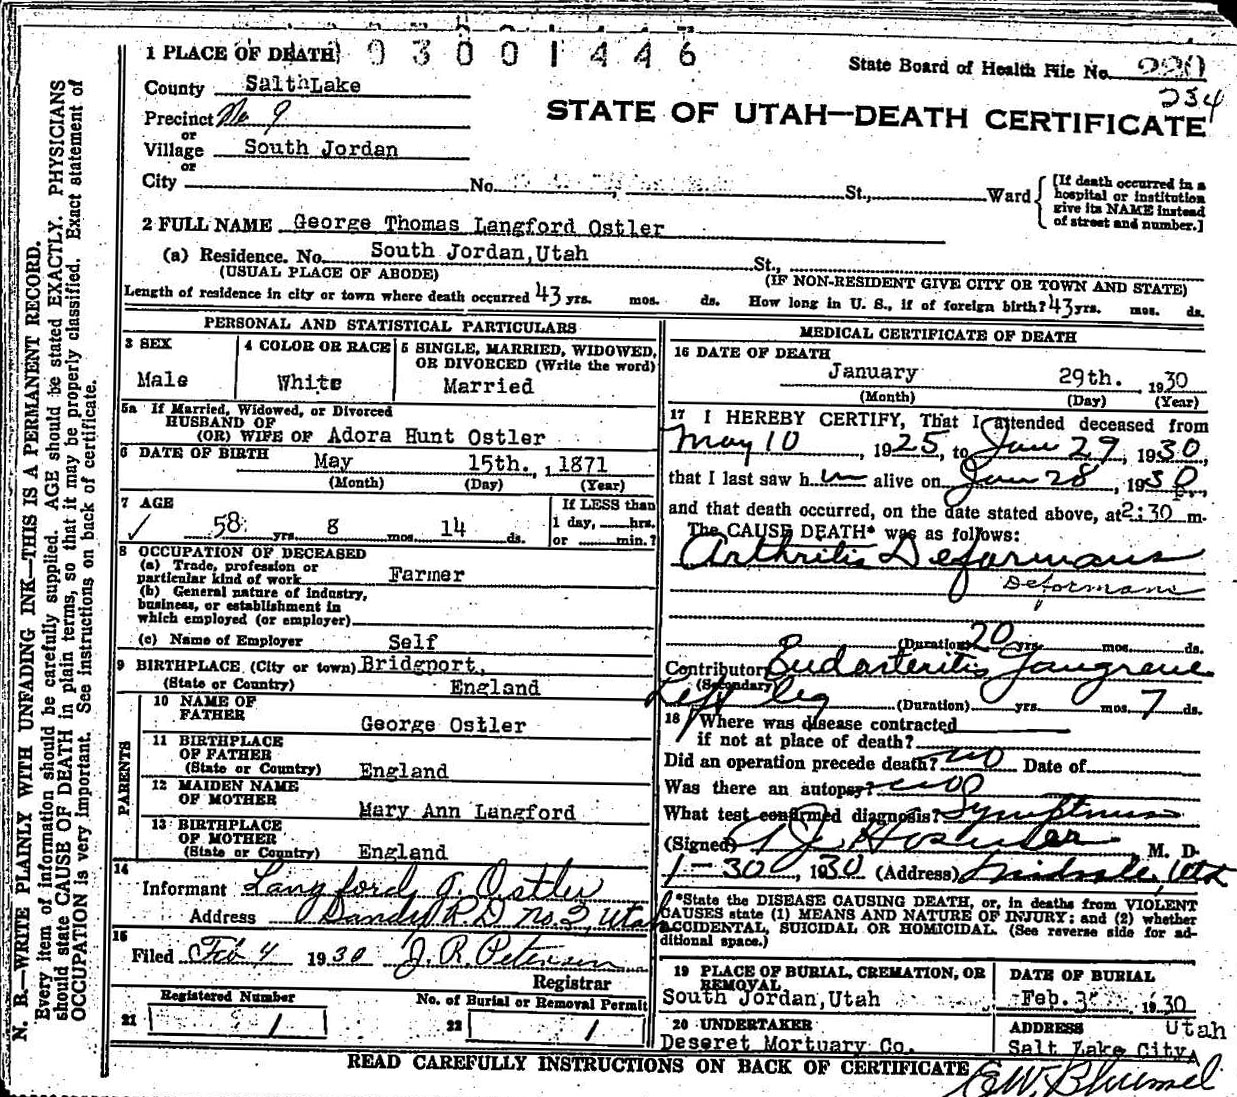 1 PLACE OF DEATH
03001446
State Board of Health File No. 220
234
County Salt Lake
STATE OF UTAH—DEATH CERTIFICATE
Precinct No. 9
or
Village South Jordan
or
City No. St., Ward
[If death occurred in a hospital or institution give its NAME instead of street and number.]
2 FULL NAME George Thomas Langford Ostler
(a) Residence. No. South Jordan, Utah St.,
(USUAL PLACE OF ABODE) (IF NON-RESIDENT GIVE CITY OR TOWN AND STATE)
Length of residence in city or town where death occurred 43 yrs. mos. ds. How long in U. S., if of foreign birth? 43 yrs. mos. ds.
PERSONAL AND STATISTICAL PARTICULARS
3 SEX
Male
4 COLOR OR RACE
White
5 SINGLE, MARRIED, WIDOWED,
OR DIVORCED (Write the word)
Married
5a If Married, Widowed, or Divorced
HUSBAND OF
(OR) WIFE OF Adora Hunt Ostler
6 DATE OF BIRTH May 15th., 1871
(Month) (Day) (Year)
7 AGE
58 yrs. 8 mos. 14 ds.
If LESS than
1 day, hrs.
or min.?
8 OCCUPATION OF DECEASED
(a) Trade, profession or
particular kind of work Farmer
(b) General nature of industry,
business, or establishment in
which employed (or employer)
(c) Name of Employer Self
9 BIRTHPLACE (City or town) Bridgport,
(State or Country) England
PARENTS
10 NAME OF
FATHER George Ostler
11 BIRTHPLACE
OF FATHER
(State or Country) England
12 MAIDEN NAME
OF MOTHER Mary Ann Langford
13 BIRTHPLACE
OF MOTHER
(State or Country) England
14
Informant Langford G. Ostler
Address Sandy R D. no. 3, Utah
15
Filed Feb 4 1930 J. R. Peterson
Registrar
Registered Number
21 1
No. of Burial or Removal Permit
22 1
MEDICAL CERTIFICATE OF DEATH
16 DATE OF DEATH
January 29th. 1930
(Month) (Day) (Year)
17 I HEREBY CERTIFY, That I attended deceased from
May 10, 1925, to Jan 29, 1930,
that I last saw him alive on Jan 28, 1930,
and that death occurred, on the date stated above, at 2:30 p. m.
The CAUSE DEATH* was as follows:
Arthritis Deformans
Deformans
(Duration) 20 yrs. mos. ds.
Contributory Endarteritis Gangrene
(Secondary)
Left leg (Duration) yrs. mos. 7 ds.
18 Where was disease contracted
if not at place of death?
Did an operation precede death? no Date of
Was there an autopsy? no
What test confirmed diagnosis? Symptoms
(Signed) M. D.
1-30, 1930 (Address) Midvale, Utah
*State the DISEASE CAUSING DEATH, or, in deaths from VIOLENT
CAUSES state (1) MEANS AND NATURE OF INJURY; and (2) whether
ACCIDENTAL, SUICIDAL OR HOMICIDAL. (See reverse side for ad-
ditional space.)
19 PLACE OF BURIAL, CREMATION, OR
REMOVAL
South Jordan, Utah
DATE OF BURIAL
Feb. 3 1930
20 UNDERTAKER
Deseret Mortuary Co.
ADDRESS Utah
Salt Lake City
READ CAREFULLY INSTRUCTIONS ON BACK OF CERTIFICATE
N. B.—WRITE PLAINLY WITH UNFADING INK—THIS IS A PERMANENT RECORD.
Every item of information should be carefully supplied. AGE should be stated EXACTLY. PHYSICIANS
should state CAUSE OF DEATH in plain terms, so that it may be properly classified. Exact statement of
OCCUPATION is very important. See instructions on back of certificate.